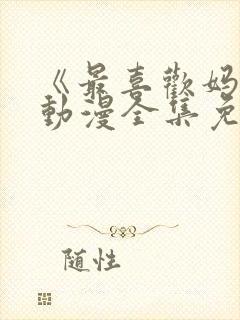 《最喜歡妈
動漫全集免
随性